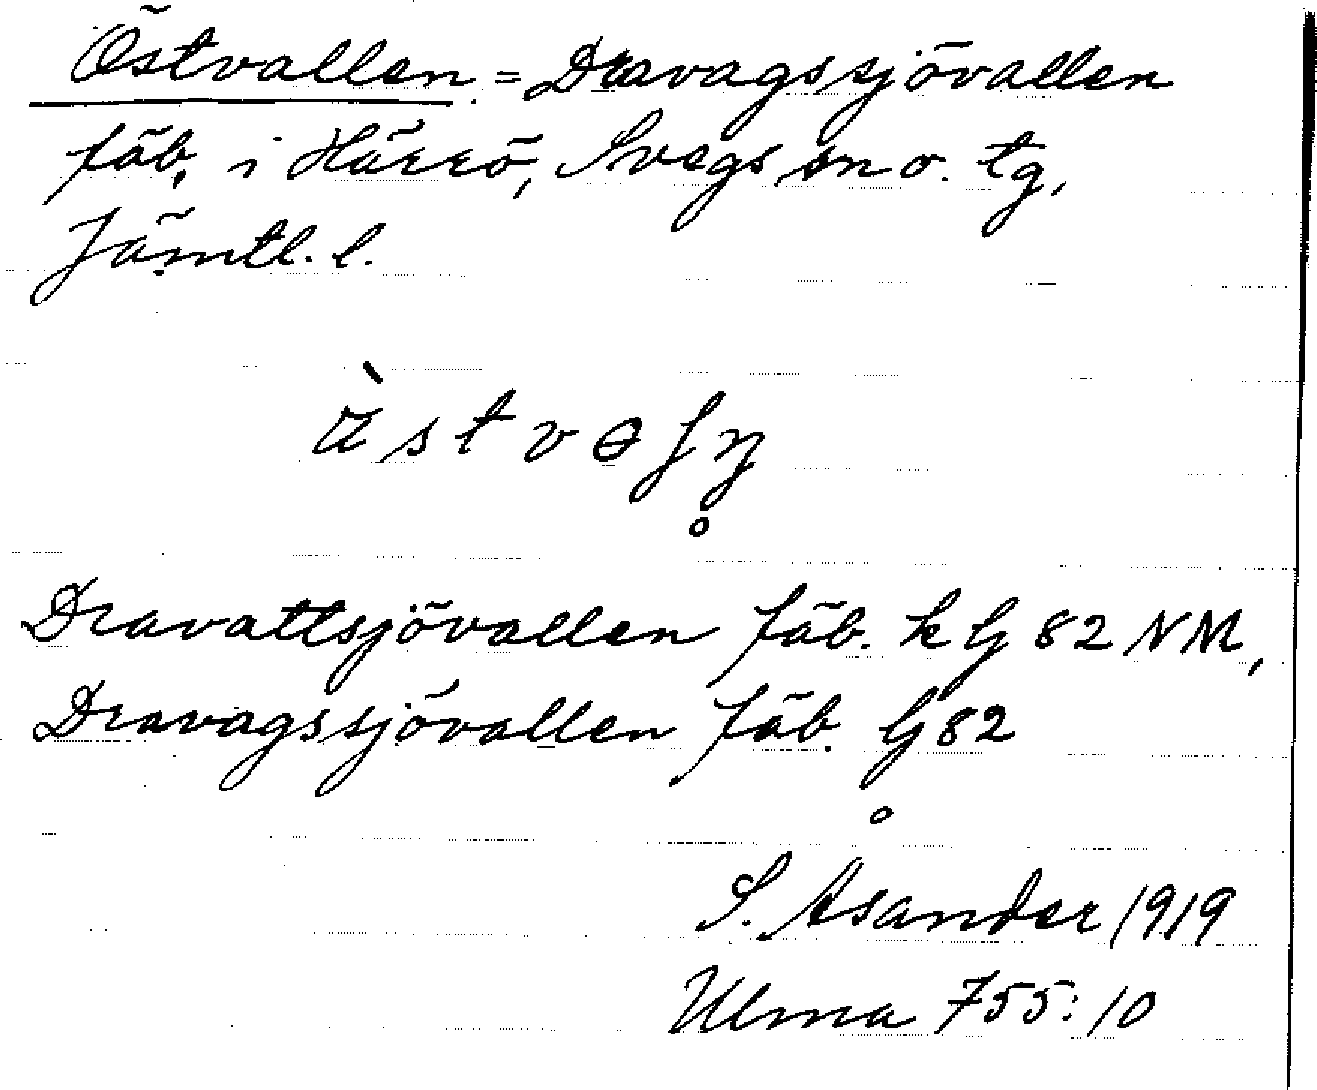 Östvallen = Dravagssjövallen
fäb. i Härrö, Svegs sn o. tg,
Jämtl. l.
Dravattsjövallen fäb. k G 82 NM,
Dravagssjövallen fäb. G 82
S. Asander 1919
Ulma 755:10